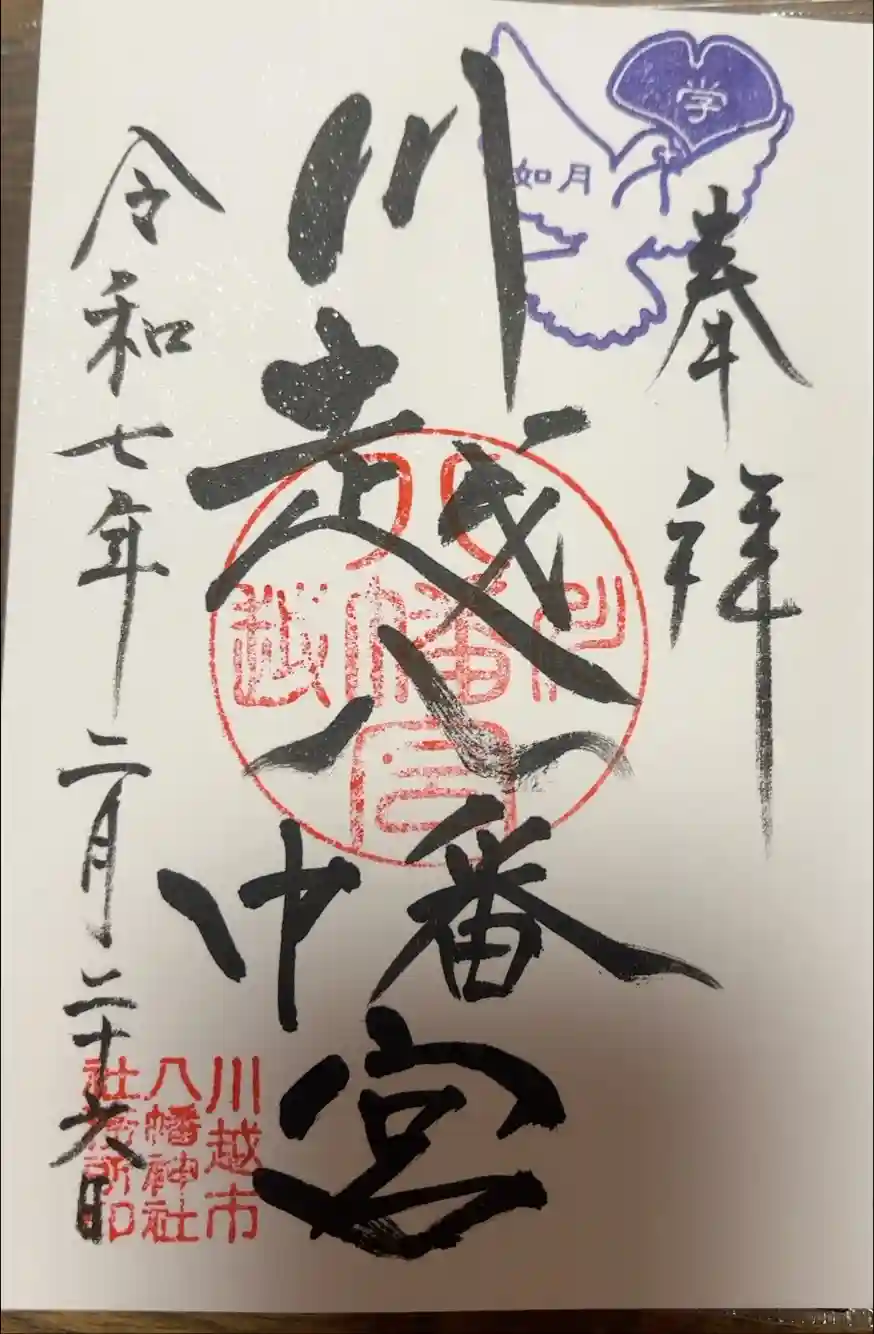 奉拝
学
如月
川越八幡宮
川越
八幡宮
令和七年二月二十六日
川越市
八幡神社
社務所印